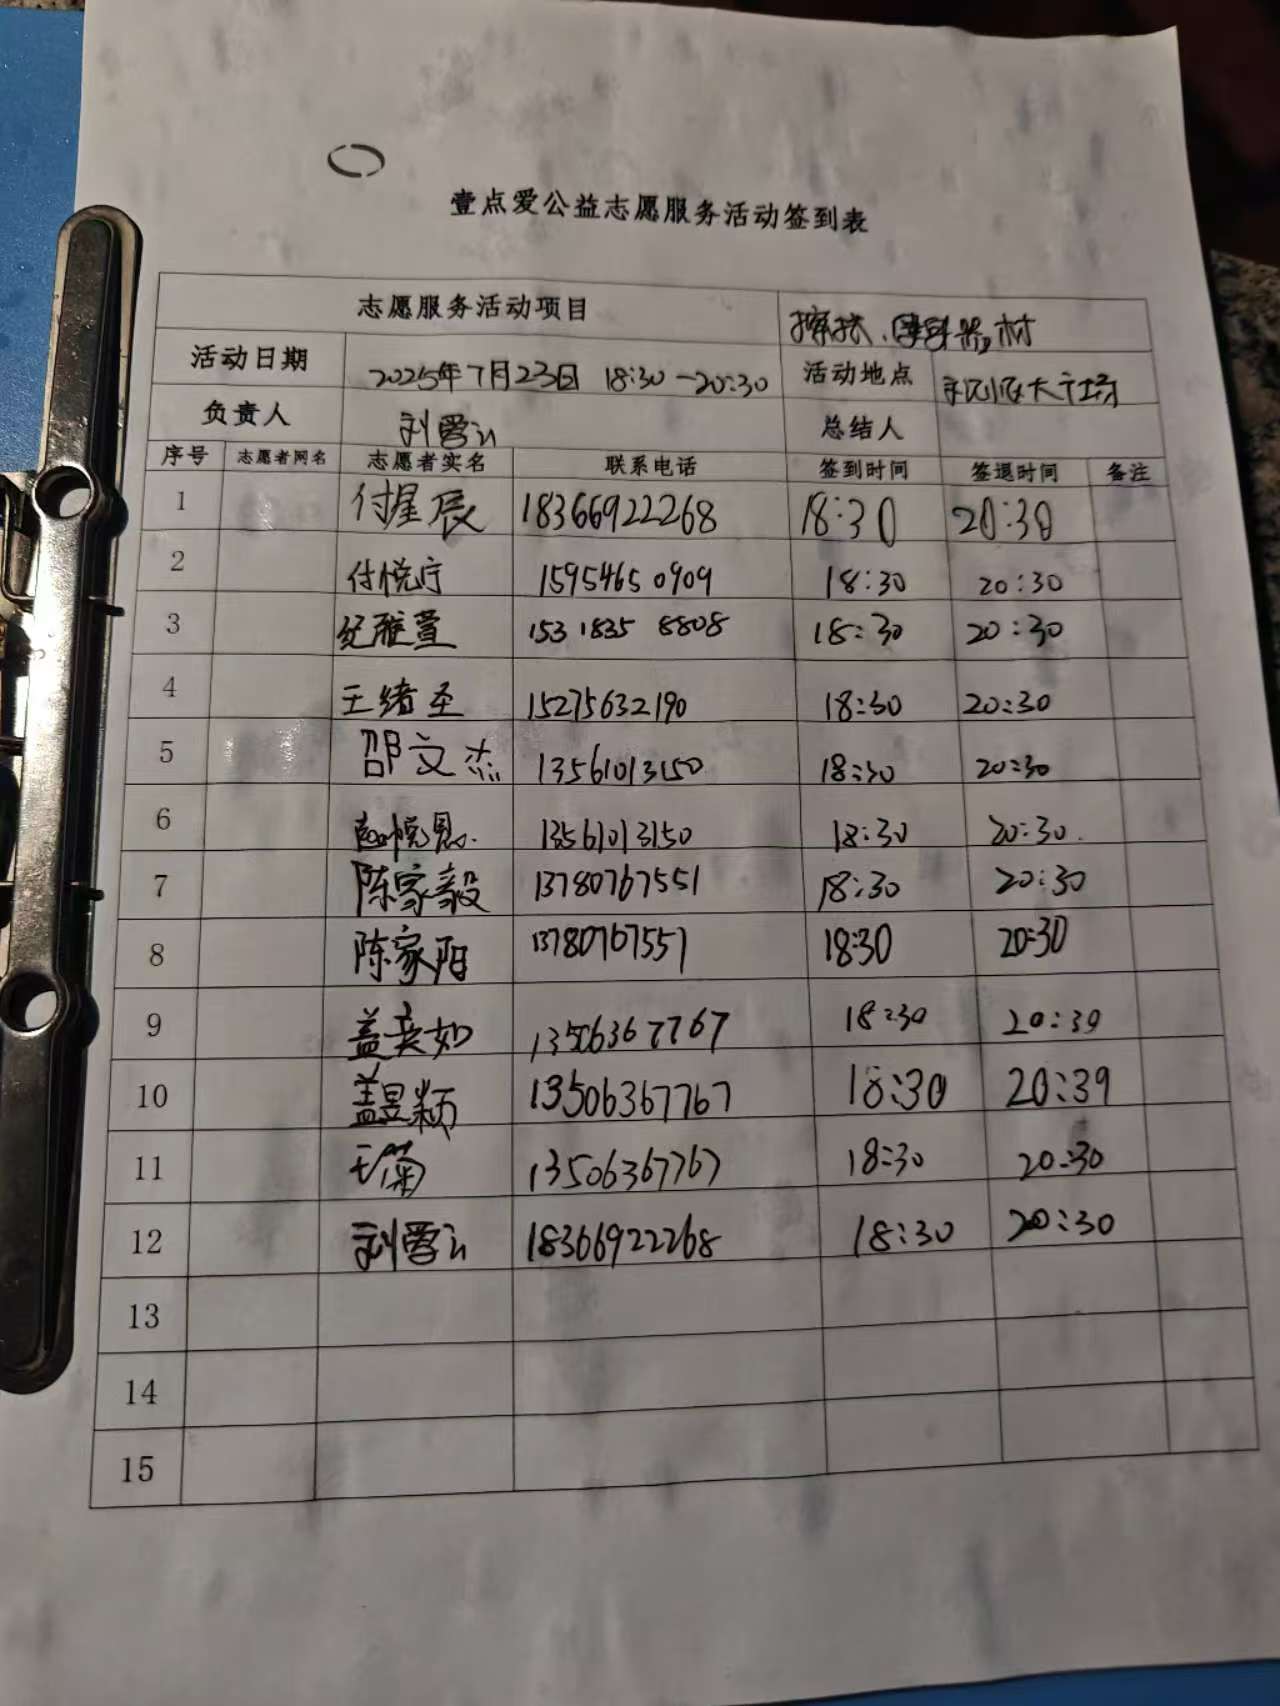 壹点爱公益志愿服务活动签到表
志愿服务活动项目 擦 器材
活动日期 2025年7月23日 18:30-20:30 活动地点
负责人 刘 总结人
序号 志愿者网名 志愿者实名 联系电话 签到时间 签退时间 备注
1 付星辰 18366922268 18:30 20:30
2 付悦宁 15954650909 18:30 20:30
3 纪雅萱 153 1835 8808 18:30 20:30
4 王绪圣 15275632190 18:30 20:30
5 邵文杰 13561013150 18:30 20:30
6 13561013150 18:30 20:30
7 陈家毅 13780767551 18:30 20:30
8 陈家阳 13780767551 18:30 20:30
9 盖奕如 13506367767 18:30 20:30
10 盖昱颖 13506367767 18:30 20:39
11 王菊 13506367767 18:30 20:30
12 刘 18366922268 18:30 20:30
13
14
15